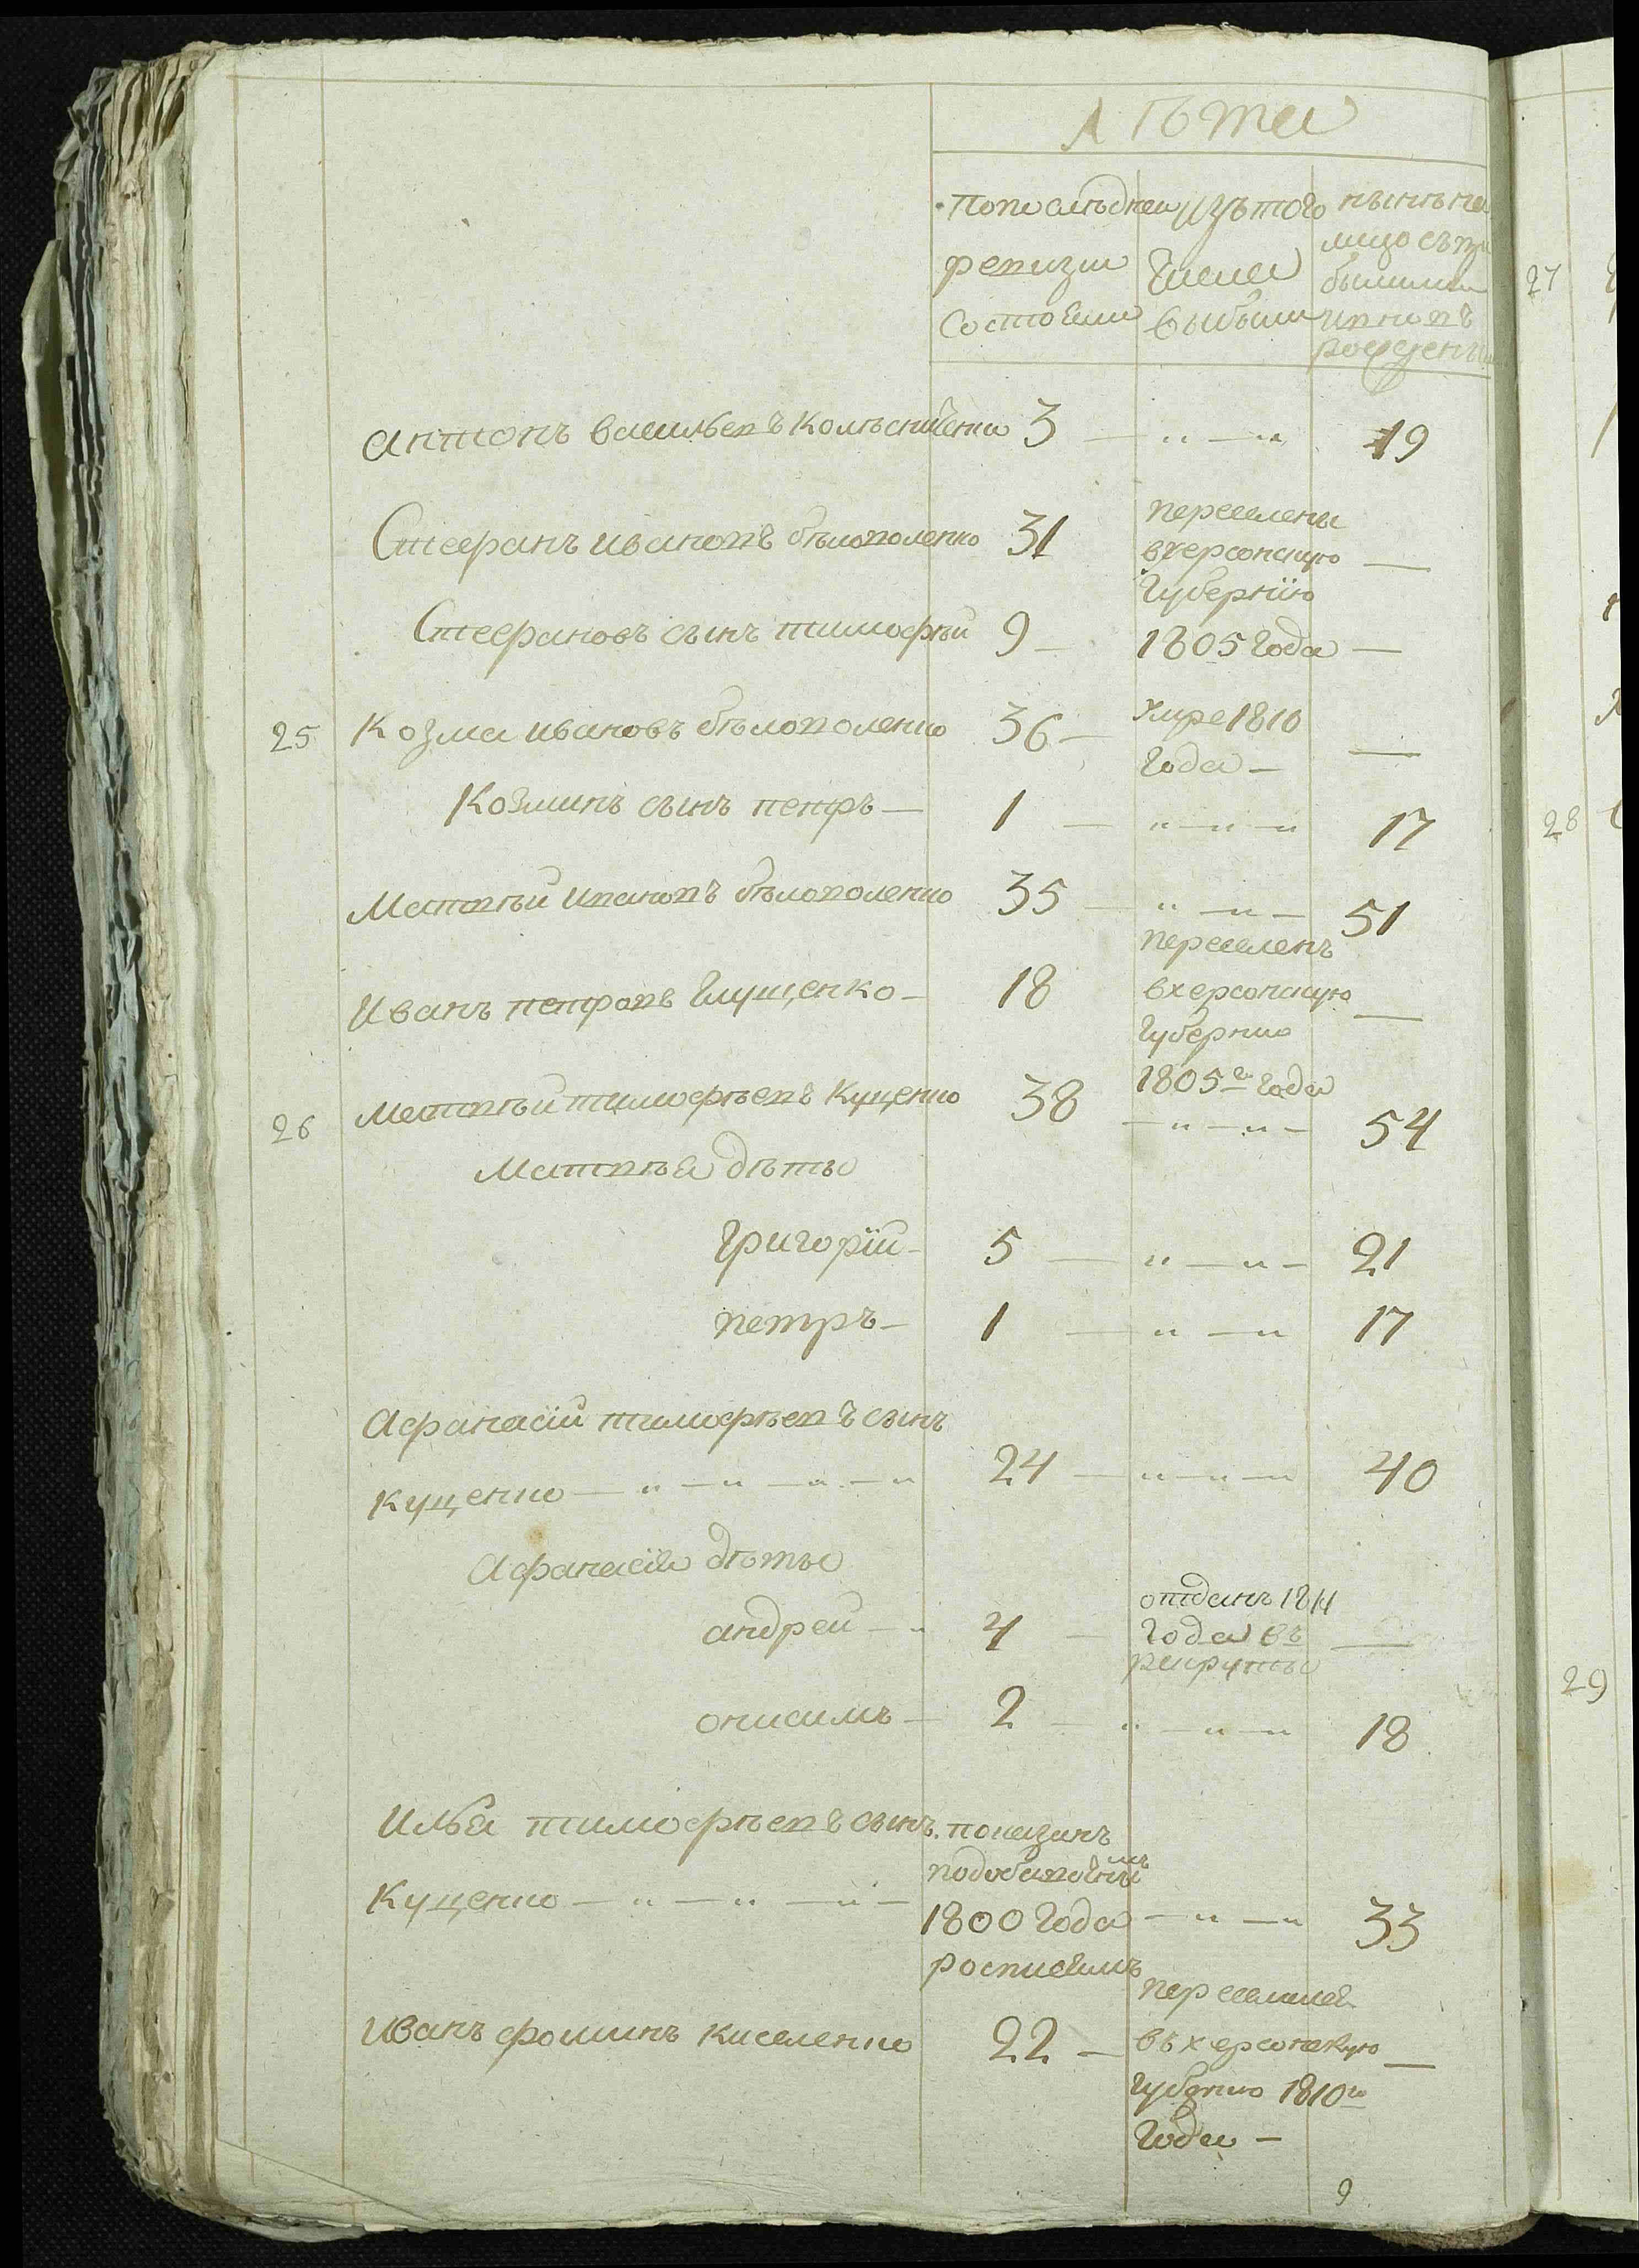 лѣта
по последнеи
ревизии
состояли
изъ того
числа
выбыли
нынѣ на
лицо съ при
былыми
и вновь
рожденны
антонъ васильевъ Колѣсниченко 3 19
Стефанъ ивановъ бѣлополенко 31 переселены
вхерсонскую
Губернїю
Стефановъ сынъ тимофѣй 9 1805 года
25 Козма ивановъ бѣлополенко 36 умре 1810
года
Козминъ сынъ петръ 1 17
Матвѣй ивановъ бѣлополенко 35 51
Иванъ петровъ Глущенко 18 переселенъ
вхерсонскую
Губернию
1805го года
26 Матвѣй тимофѣевъ Куценко 38 54
Матвѣя дѣты
Григорїй 5 21
петръ 1 17
Афанасїй тимофѣевъ сынъ
Куценко 24 40
Афанасїя дѣты
андрей 4 отданъ 1811
года въ
рекруты
онисимъ 2 18
Илья тимофѣевъ сынъ показанъ
Куценко 1800 года 33
росписямъ
Иванъ фоминъ Киселенко 22 переселился
въ херсонскую
Губернию 1810го
года
9
27
28
29